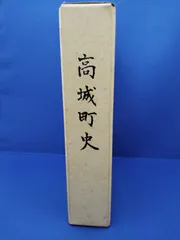 高城町史